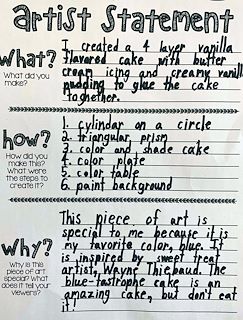 artist statement
what?
What did you
make?
I created a 4 layer vanilla
flavored cake with butter
cream icing and creamy vanilla
pudding to glue the cake
togheter.
how?
How did you
make this?
What were
the steps to
create it?
1. cylindar on a circle
2. triangular prism
3. color and shade cake
4. color plate
5. color table
6. paint background
why?
Why is this
piece of art
special? What
does it tell your
viewers?
This piece of art is
special to me because it is
my favorite color, blue. It
is inspired by sweet treat
artist, Wayne Thiebaud. The
blue-tastrophe cake is an
amazing cake, but don't eat
it!